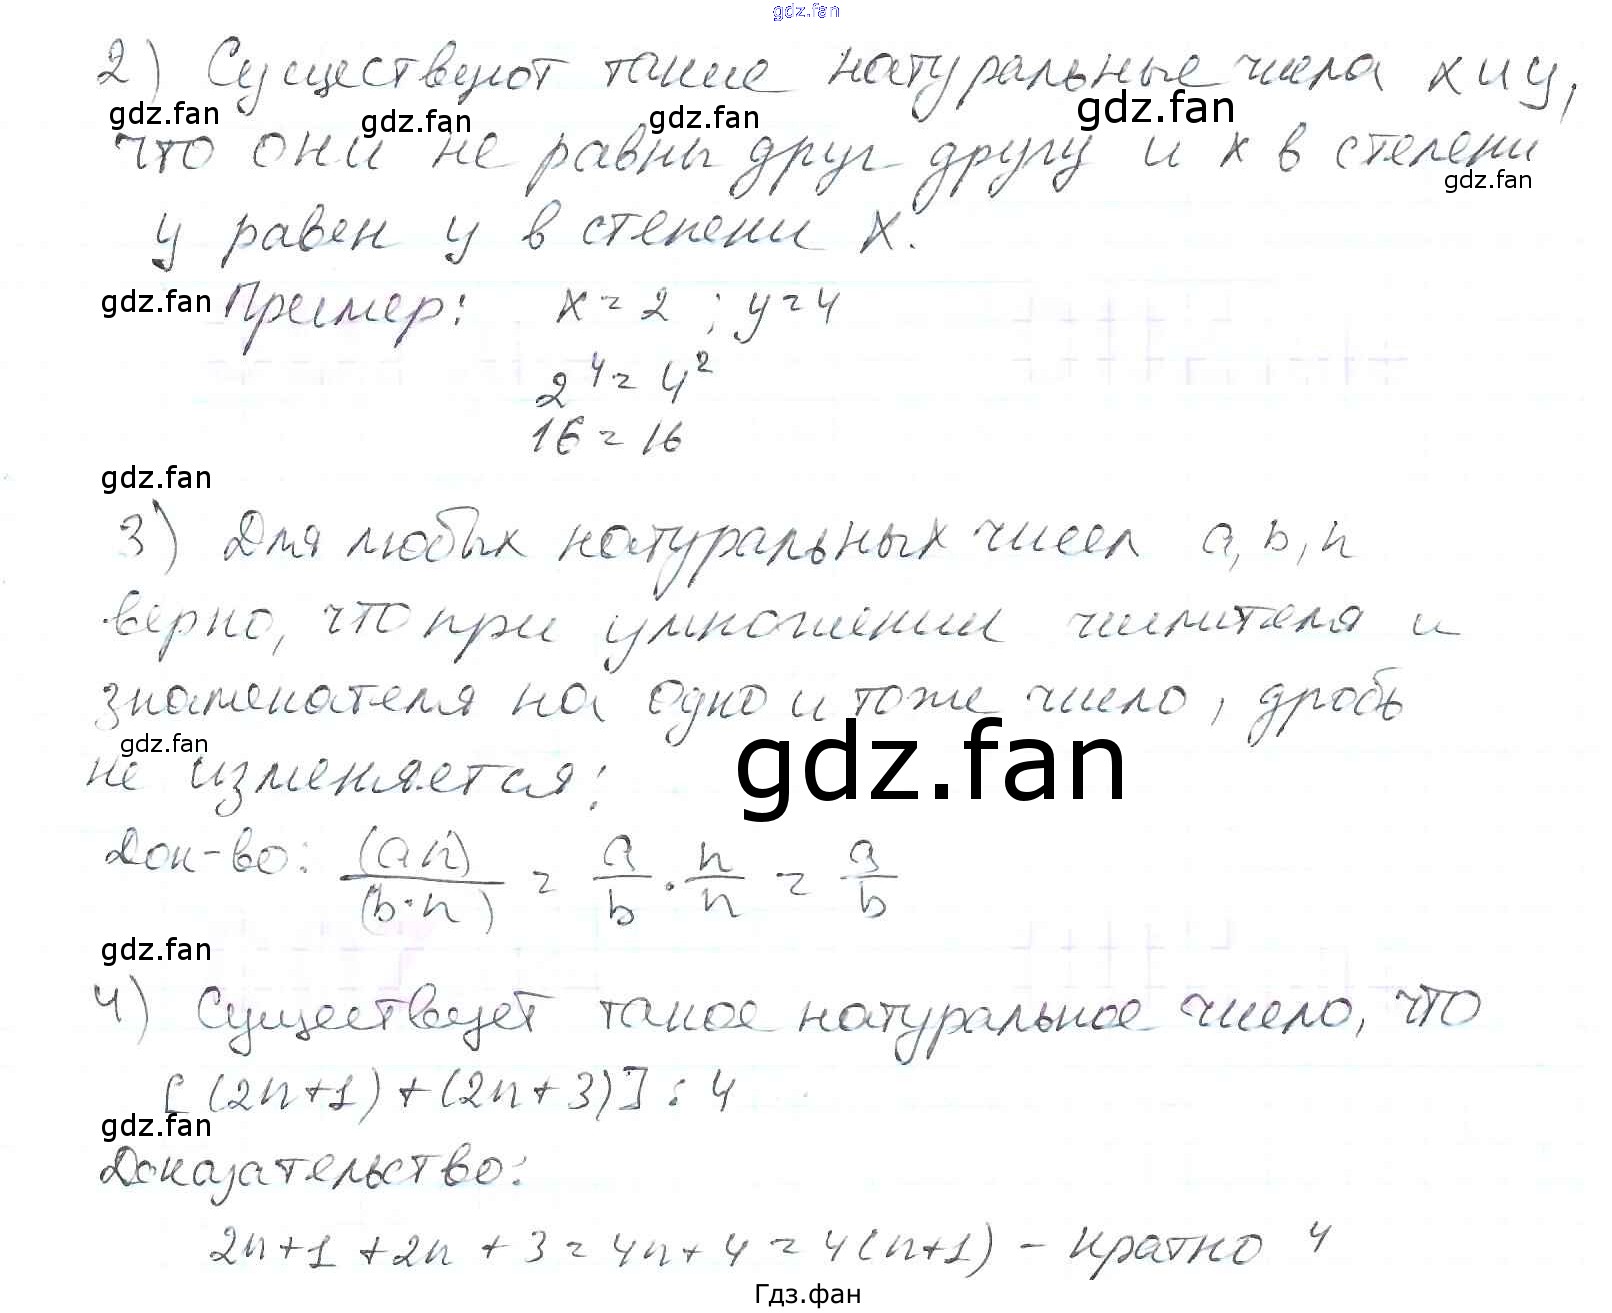 gdz.fan
2) Существуют такие натуральные числа x и y,
gdz.fan gdz.fan gdz.fan gdz.fan
что они не равны друг другу и x в степени
gdz.fan
y равен y в степени x.
gdz.fan Пример: x = 2 ; y = 4
2⁴ = 4²
16 = 16
gdz.fan
3) Для любых натуральных чисел a, b, n
верно, что при умножении числителя и
знаменателя на одно и тоже число, дробь
gdz.fan gdz.fan
не изменяется:
Док-во: (a n)/(b·n) = a/b · n/n = a/b
gdz.fan
4) Существует такое натуральное число, что
[(2n+1)+(2n+3)] : 4
gdz.fan
Доказательство:
2n+1+2n+3=4n+4=4(n+1) - кратно 4
Гдз.фан